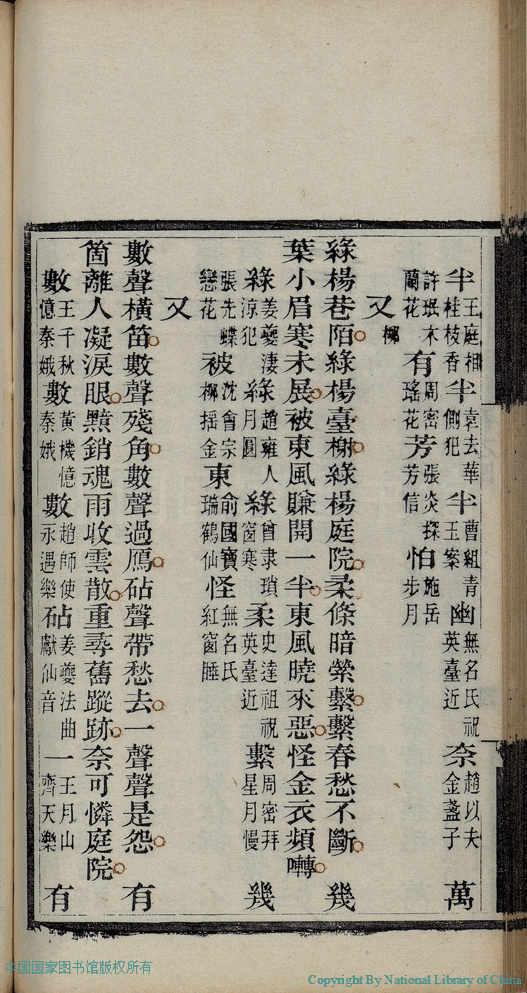 半王庭相桂枝香半袁去華側犯半曹組青玉案幽無名氏祝英臺近奈趙以夫金盞子萬
許珉木蘭花有周密瑤花芳張炎探芳信怕施岳步月
又柳
綠楊巷陌綠楊臺榭綠楊庭院柔條暗縈繫繫春愁不斷幾
葉小眉寒未展被東風賺開一半東風曉來惡怪金衣頻囀
綠姜夔淒涼犯綠趙雍人月圓綠曾隶瑣窗寒柔史達祖祝英臺近繫周密拜星月慢幾
張先蝶戀花被沈會宗柳搖金東俞國寶瑞鶴仙怪無名氏紅窗睡
又
數聲橫笛數聲殘角數聲過鴈砧聲帶愁去一聲聲是怨有
箇離人凝淚眼黯銷魂雨收雲散重尋舊蹤跡奈可憐庭院
數王千秋憶秦娥數黃機憶秦娥數趙師使永遇樂砧姜夔法曲獻仙音一王月山齊天樂有
中国国家图书馆版权所有
Copyright By National Library of China